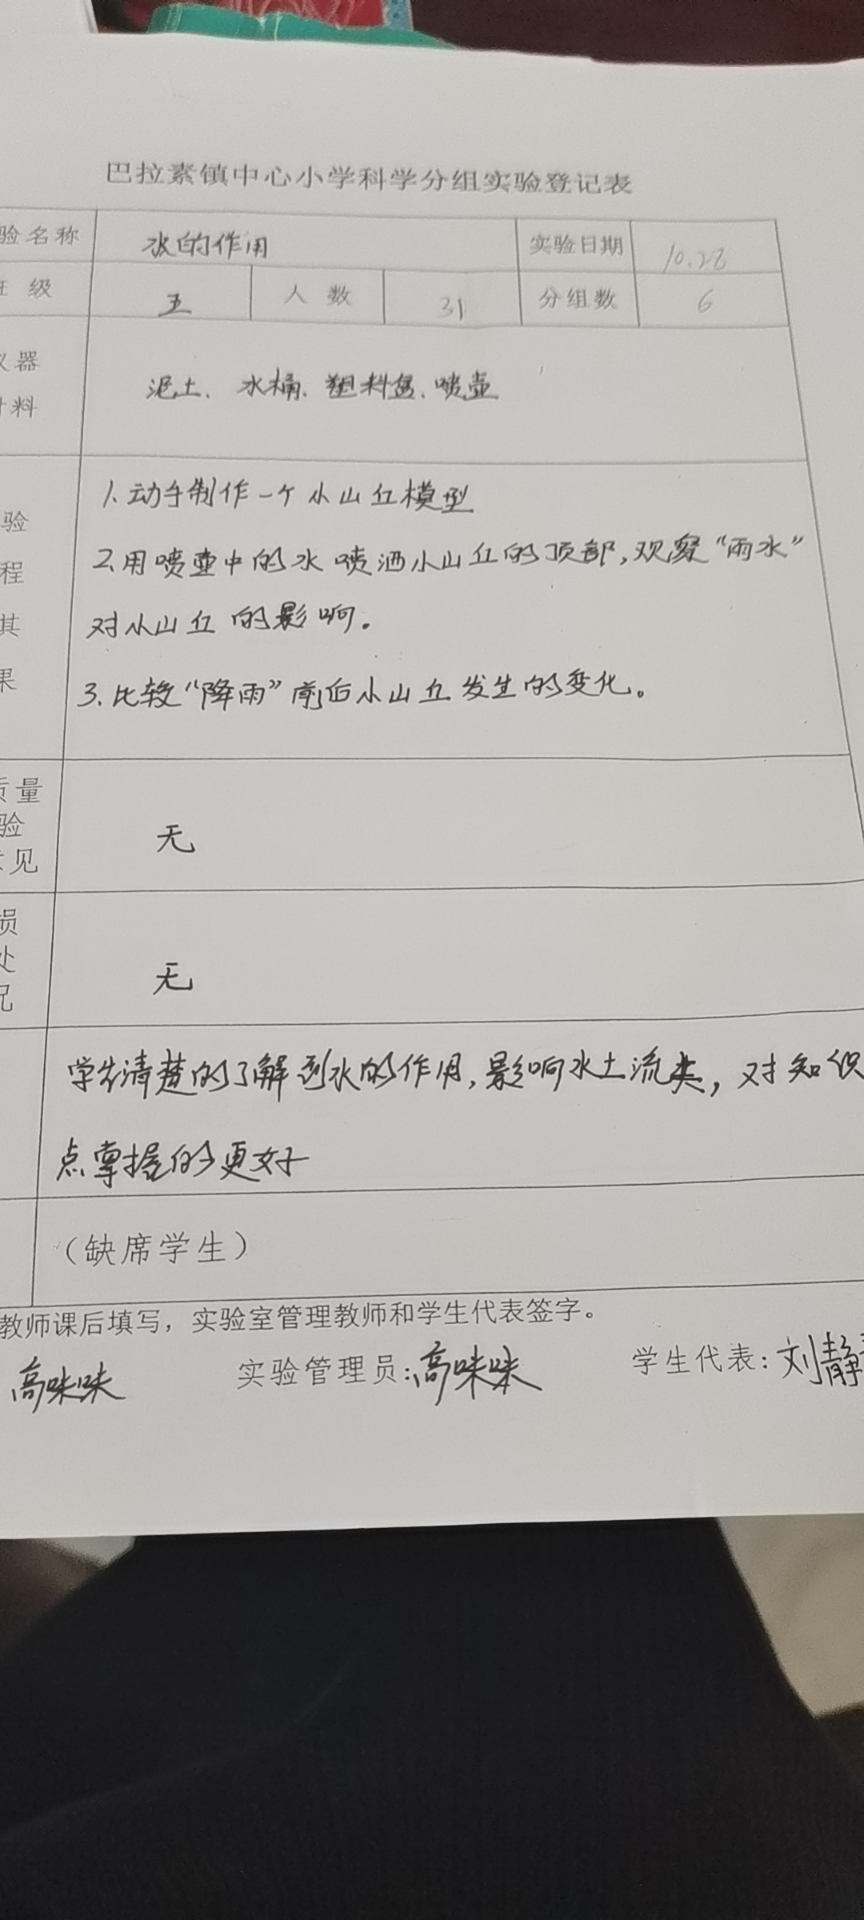 巴拉素镇中心小学科学分组实验登记表
验名称 水的作用 实验日期 10.28
班 级 五 人 数 31 分组数 6
仪器
材料
泥土、水桶、塑料盆、喷壶
1.动手制作一个小山丘模型
验
2.用喷壶中的水喷洒小山丘的顶部,观察“雨水”
程
对小山丘的影响。
其
果
3.比较“降雨”前后小山丘发生的变化。
质量
验
意见
无
损
处
况
无
学生清楚的了解到水的作用,影响水土流失,对知识
点掌握的更好
(缺席学生)
教师课后填写,实验室管理教师和学生代表签字。
高味味 实验管理员:高味味 学生代表:刘静